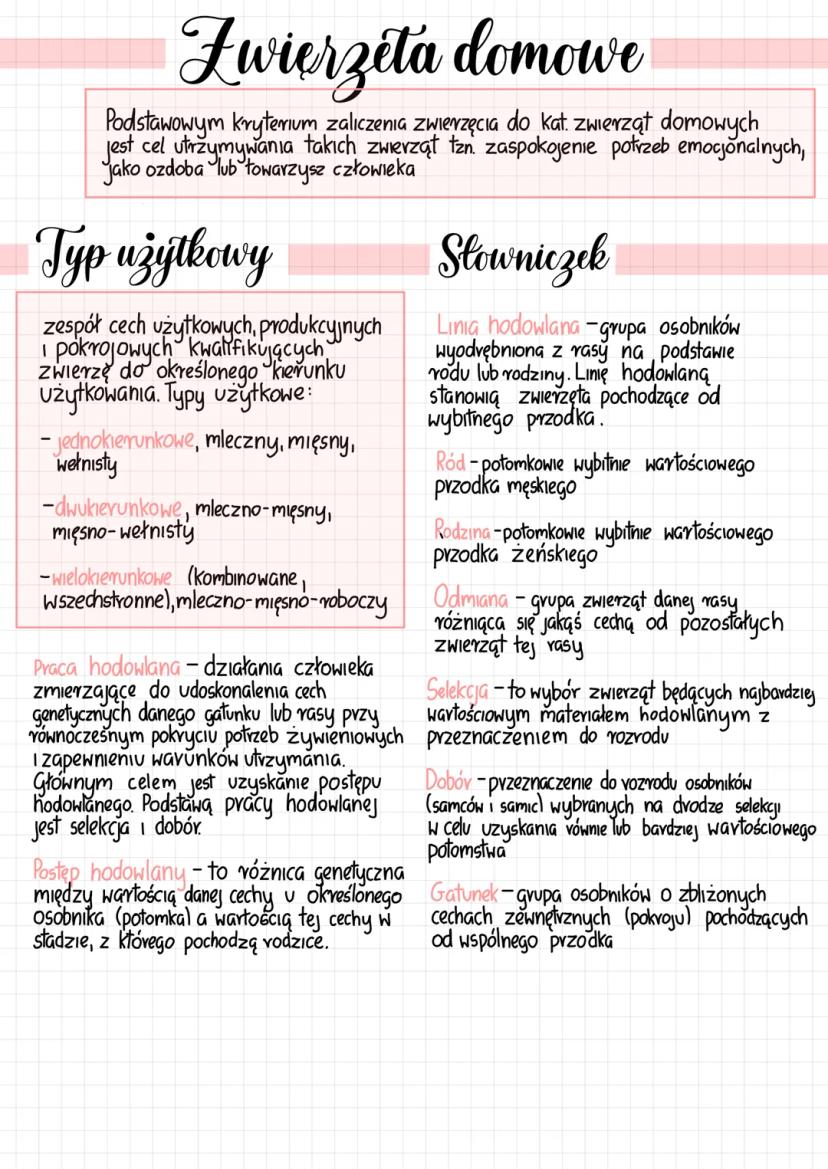 Zwierzęta domowe
Podstawowym kryterium zaliczenia zwierzęcia do kat. zwierząt domowych
jest cel utrzymywania takich zwierząt tzn. zaspokojenie potrzeb emocjonalnych,
jako ozdoba lub towarzysz człowieka
Typ użytkowy
zespół cech użytkowych, produkcyjnych
i pokrojowych kwalifikujących
zwierzę do określonego kierunku
użytkowania. Typy użytkowe:
- jednokierunkowe, mleczny, mięsny,
wełnisty
- dwukierunkowe, mleczno-mięsny,
mięsno-wełnisty
- wielokierunkowe (kombinowane,
wszechstronne), mleczno-mięsno-roboczy
Praca hodowlana - działania człowieka
zmierzające do udoskonalenia cech
genetycznych danego gatunku lub rasy przy
równoczesnym pokryciu potrzeb żywieniowych
i zapewnieniu warunków utrzymania.
Głównym celem jest uzyskanie postępu
hodowlanego. Podstawą pracy hodowlanej
jest selekcja i dobór.
Postęp hodowlany - to różnica genetyczna
między wartością danej cechy u określonego
osobnika (potomka) a wartością tej cechy w
stadzie, z którego pochodzą rodzice.
Słowniczek
Linia hodowlana - grupa osobników
wyodrębniona z rasy na podstawie
rodu lub rodziny. Linię hodowlaną
stanowią zwierzęta pochodzące od
wybitnego przodka.
Ród - potomkowie wybitnie wartościowego
przodka męskiego
Rodzina - potomkowie wybitnie wartościowego
przodka żeńskiego
Odmiana - grupa zwierząt danej rasy
różniąca się jakąś cechą od pozostałych
zwierząt tej rasy
Selekcja - to wybór zwierząt będących najbardziej
wartościowym materiałem hodowlanym z
przeznaczeniem do rozrodu
Dobór - przeznaczenie do rozrodu osobników
(samców i samic) wybranych na drodze selekcji
w celu uzyskania równie lub bardziej wartościowego
potomstwa
Gatunek - grupa osobników o zbliżonych
cechach zewnętrznych (pokroju) pochodzących
od wspólnego przodka